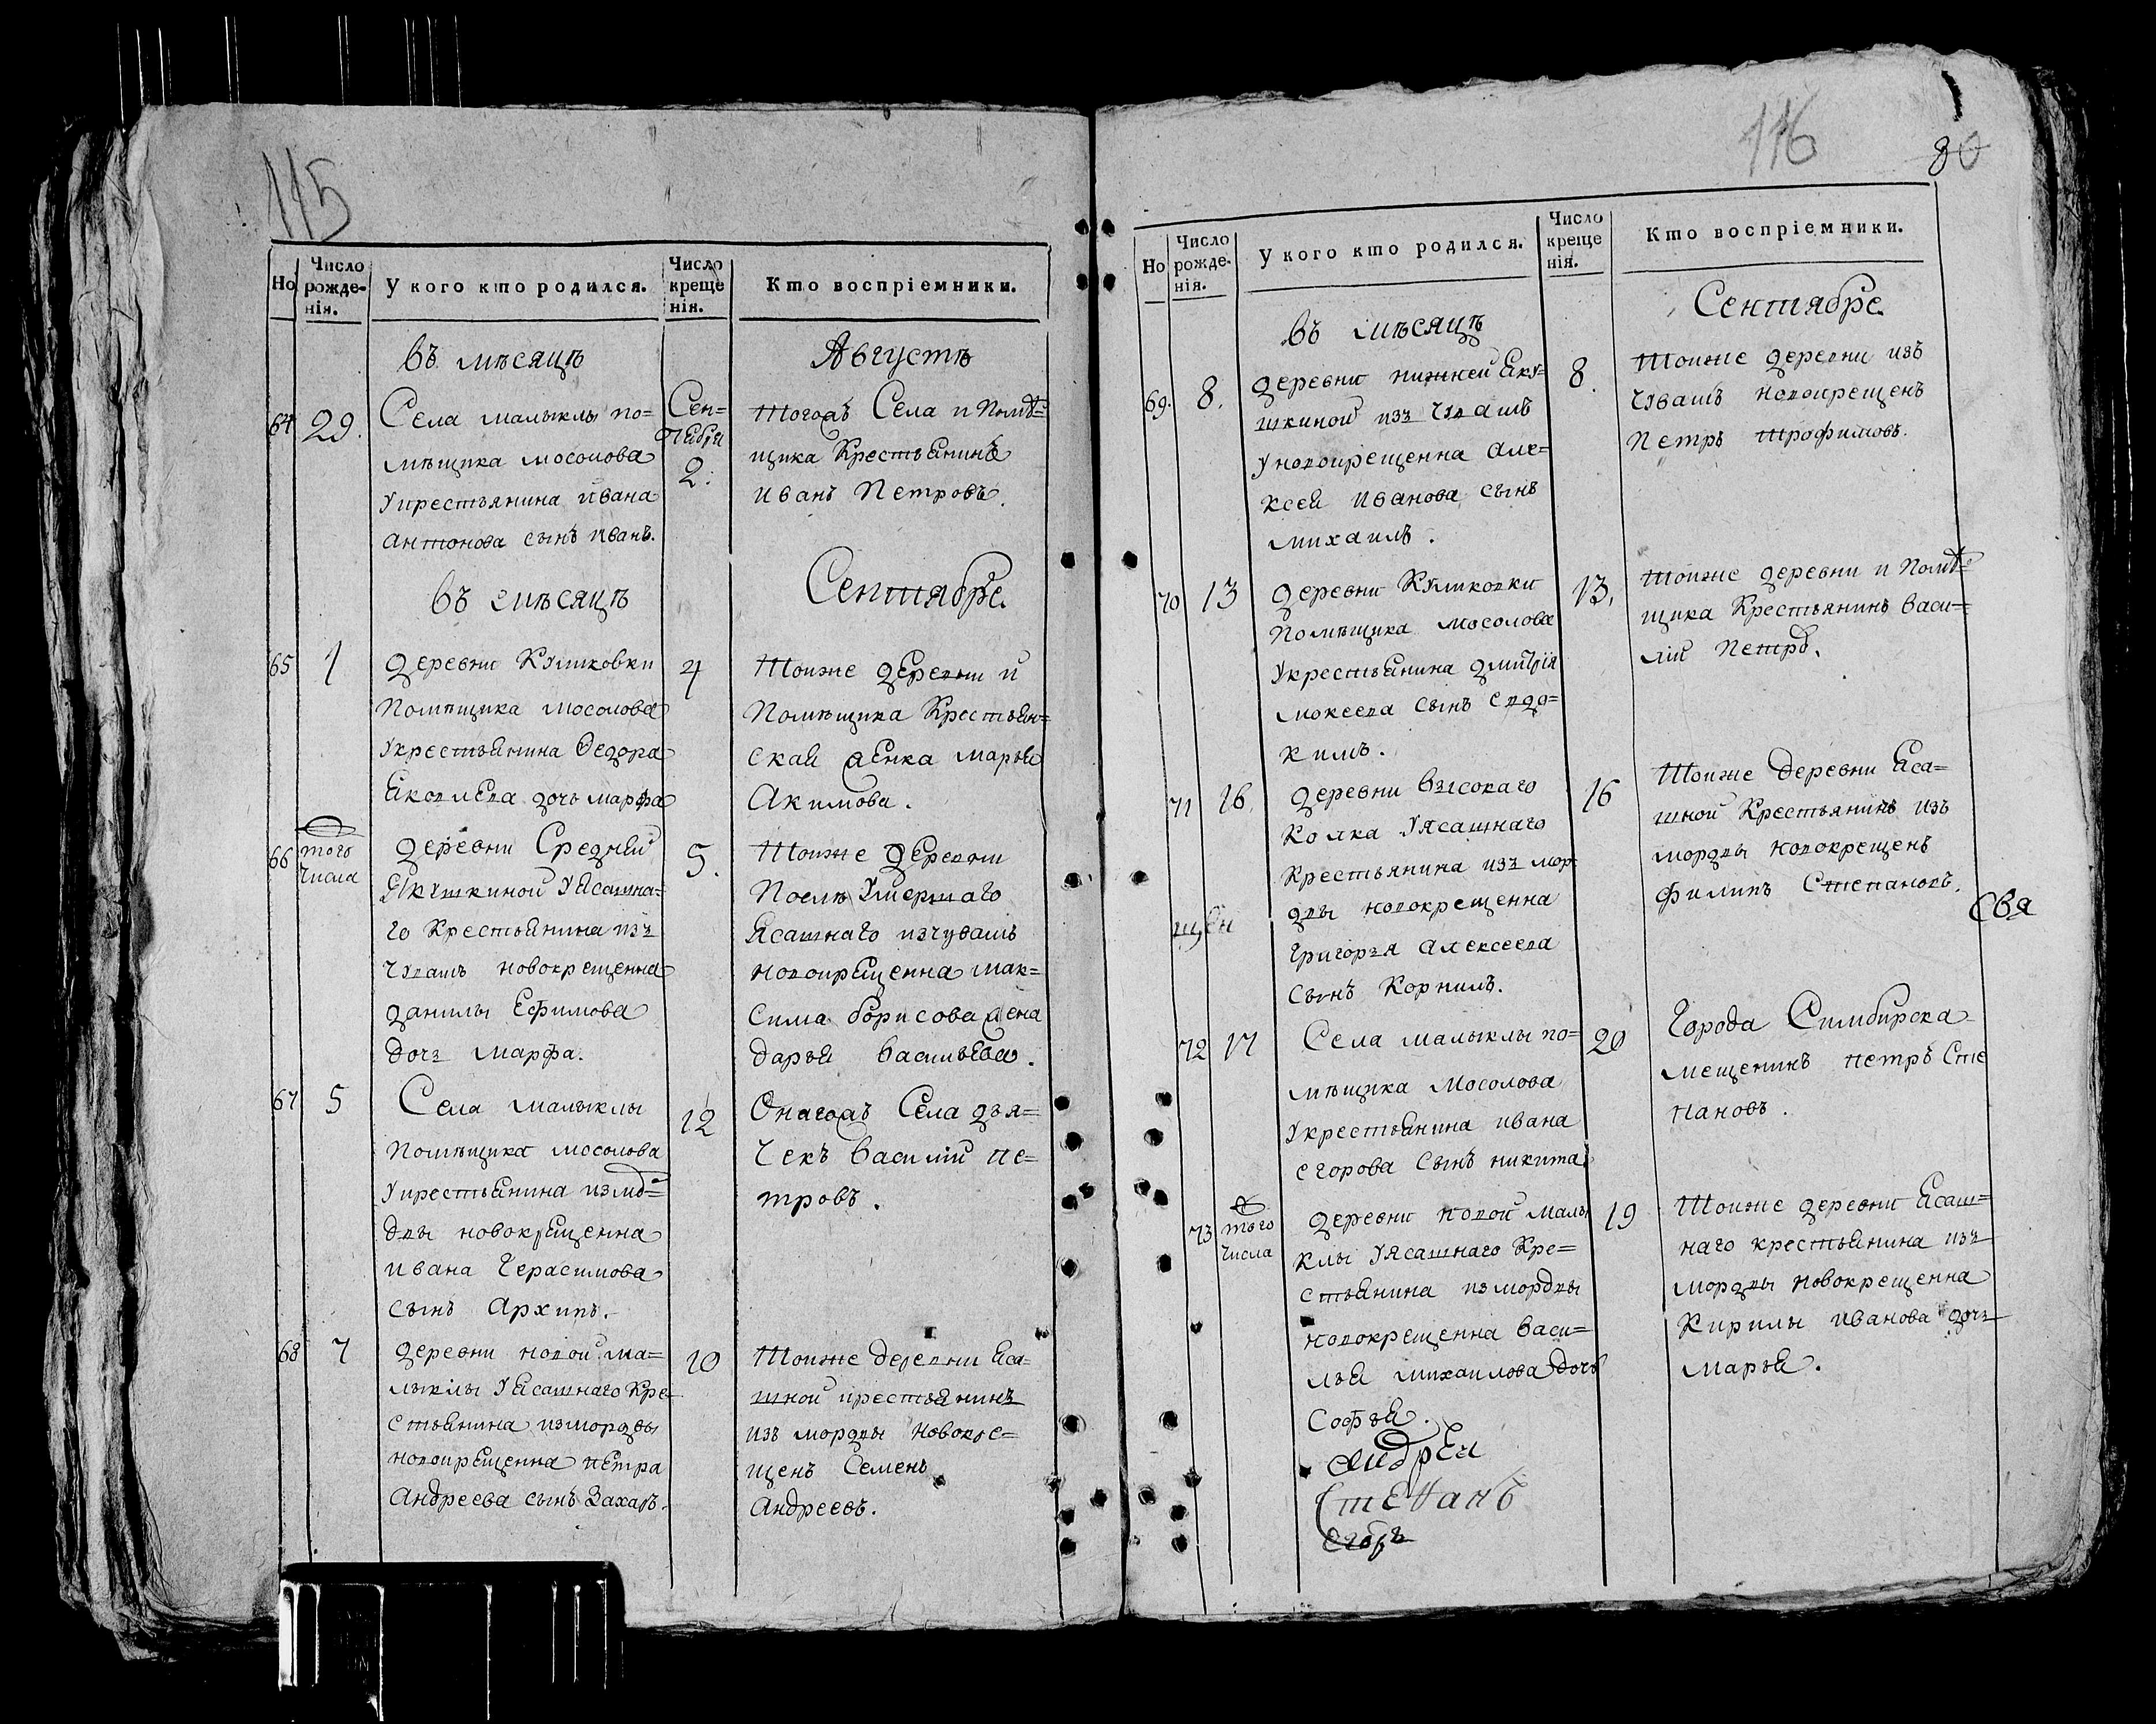 115
Но
Число рожде-нія.
У кого кто родился.
Число креще нія.
Кто воспріемники.
въ мѣсяцѣ
Августѣ
64
29.
Села малыклы по=
мѣщика мосолова
укрестьянина ивана
антонова сынъ иванъ.
Сен=
тября
2.
тогожъ Села и помѣ=
щика крестьянинъ
иванъ Петровъ.
въ мѣсяцѣ
Сентябре.
65
1
деревни Куликовки
помѣщика мосолова
укрестьянина Ѳедора
яковлева дочь марфа
4
тоиже деревни и
помѣщика крестьян=
ская женка марья
Акимова.
66
того
числа
деревни Средней
Якушкиной уясашна=
го крестьянина изъ
чувашъ новокрещенна
данилы Ефимова
дочь марфа.
5.
тоиже деревни
послѣ умершаго
ясашнаго изчувашъ
новокрещенна мак=
сима борисова жена
дарья васильева.
67
5
Села малыклы
помѣщика мосолова
укрестьянина измо=
двы новокрещенна
ивана Герасимова
сынъ архипъ.
12
Онагожъ Села дья=
чекъ василій пе=
тровъ.
68
7
деревни новой ма=
лыклы уясашнаго кре=
стьянина измордвы
новокрещенна петра
андреева сынъ Захаръ.
10
тоиже деревни яса=
шной крестьянинъ
изъ мордвы новокре=
щенъ Семенъ
андреевъ.
116
80
Но
Число рожде-нія.
У кого кто родился.
Число креще нія.
Кто воспріемники.
въ мѣсяцѣ
Сентябре.
69.
8.
деревни нижней яку=
шкиной изъ чувашъ
уновокрещенна але=
ксея иванова сынъ
михаилъ.
8.
тоиже деревни изъ
чувашъ новокрещенъ
петръ трофимовъ.
70
13
деревни Куликовки
помѣщика мосолова
укрестьянина дмитрія
мокеева сынъ евдо=
кимъ.
13.
тоиже деревни и помѣ=
щика крестьянинъ васи=
лій петровъ.
71
16.
деревни высокаго
колка уясашнаго
крестьянина изъ мор
двы новокрещенна
григорья алексеева
сынъ корнилъ.
16
тоиже деревни яса=
шной крестьянинъ изъ
мордвы новокрещенъ
филипъ степановъ.
щен
Свя
72
17
Села малыклы по=
мѣщика мосолова
укрестьянина ивана
егорова сынъ никита
20
города Симбирска
мещенинъ петръ сте
пановъ.
73
того
числа
деревни новой малы
клы уясашнаго кре=
стьянина измордвы
новокрещенна васи=
лья михаилова дочь
софья.
19
тоиже деревни ясаш=
наго крестьянина изъ
мордвы новокрещенна
кирилы иванова дочь
марья.
андреи
степанъ